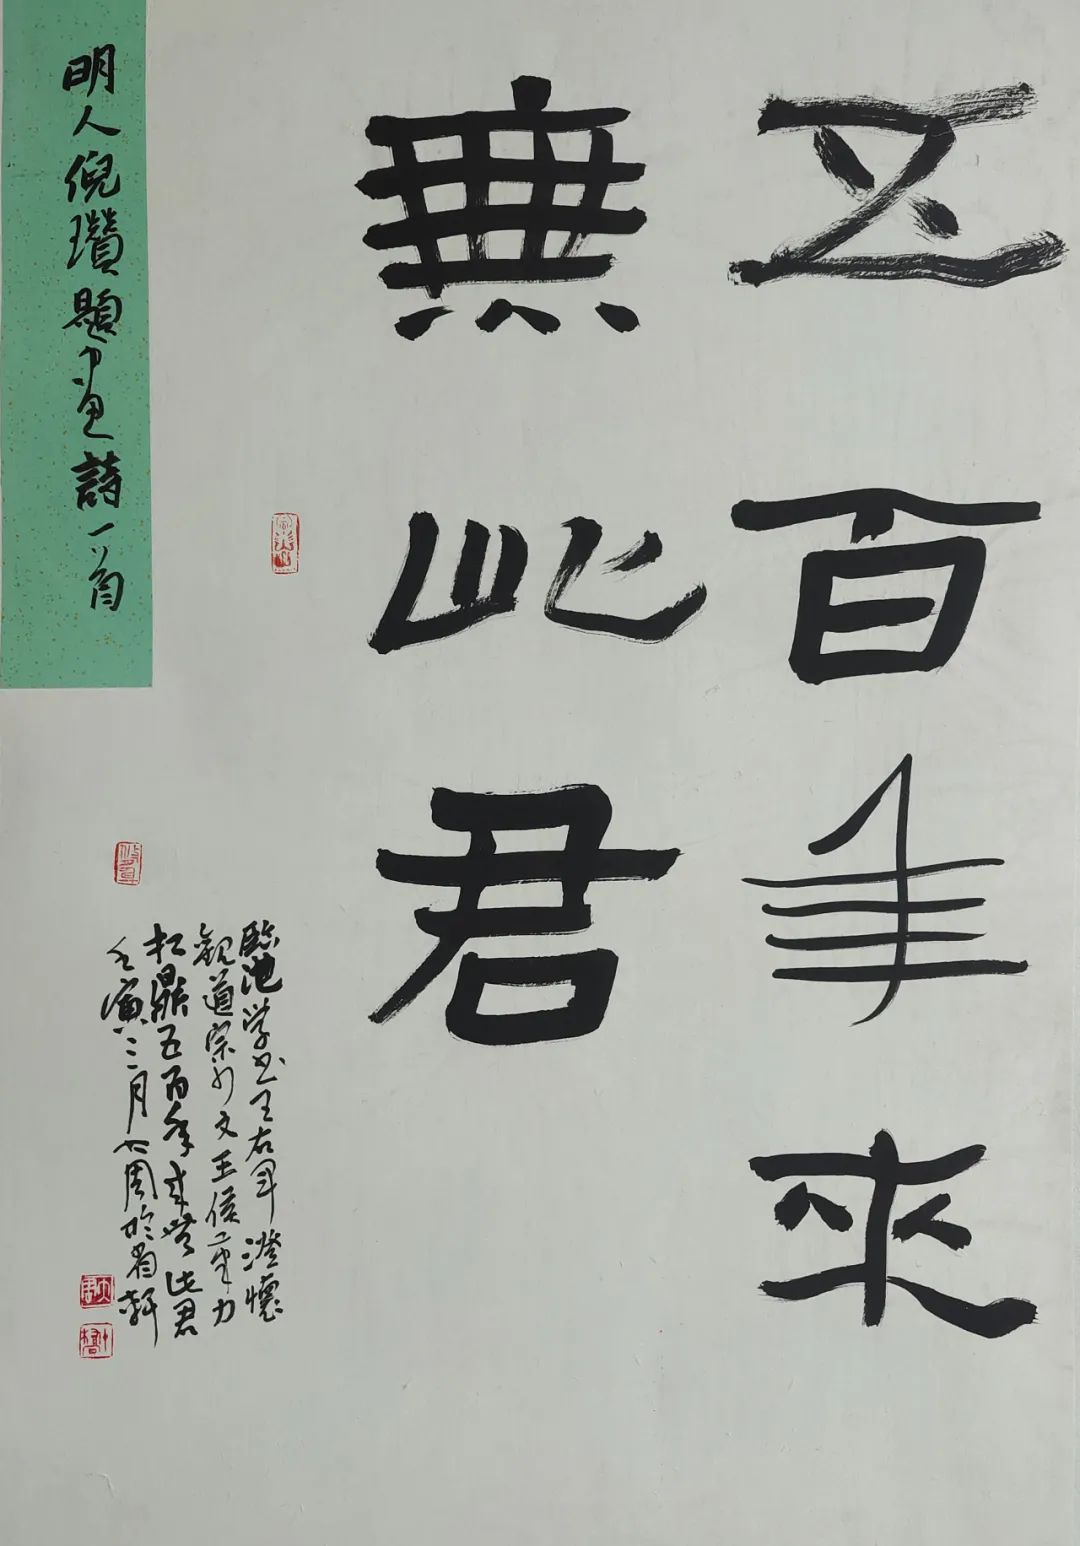 五百年來
無此君
臨池学书王右軍澄懷
觀道宗少文王侯筆力
扛鼎五百年来無此君
壬寅二月大周於軒
明人倪瓚題畫詩一首